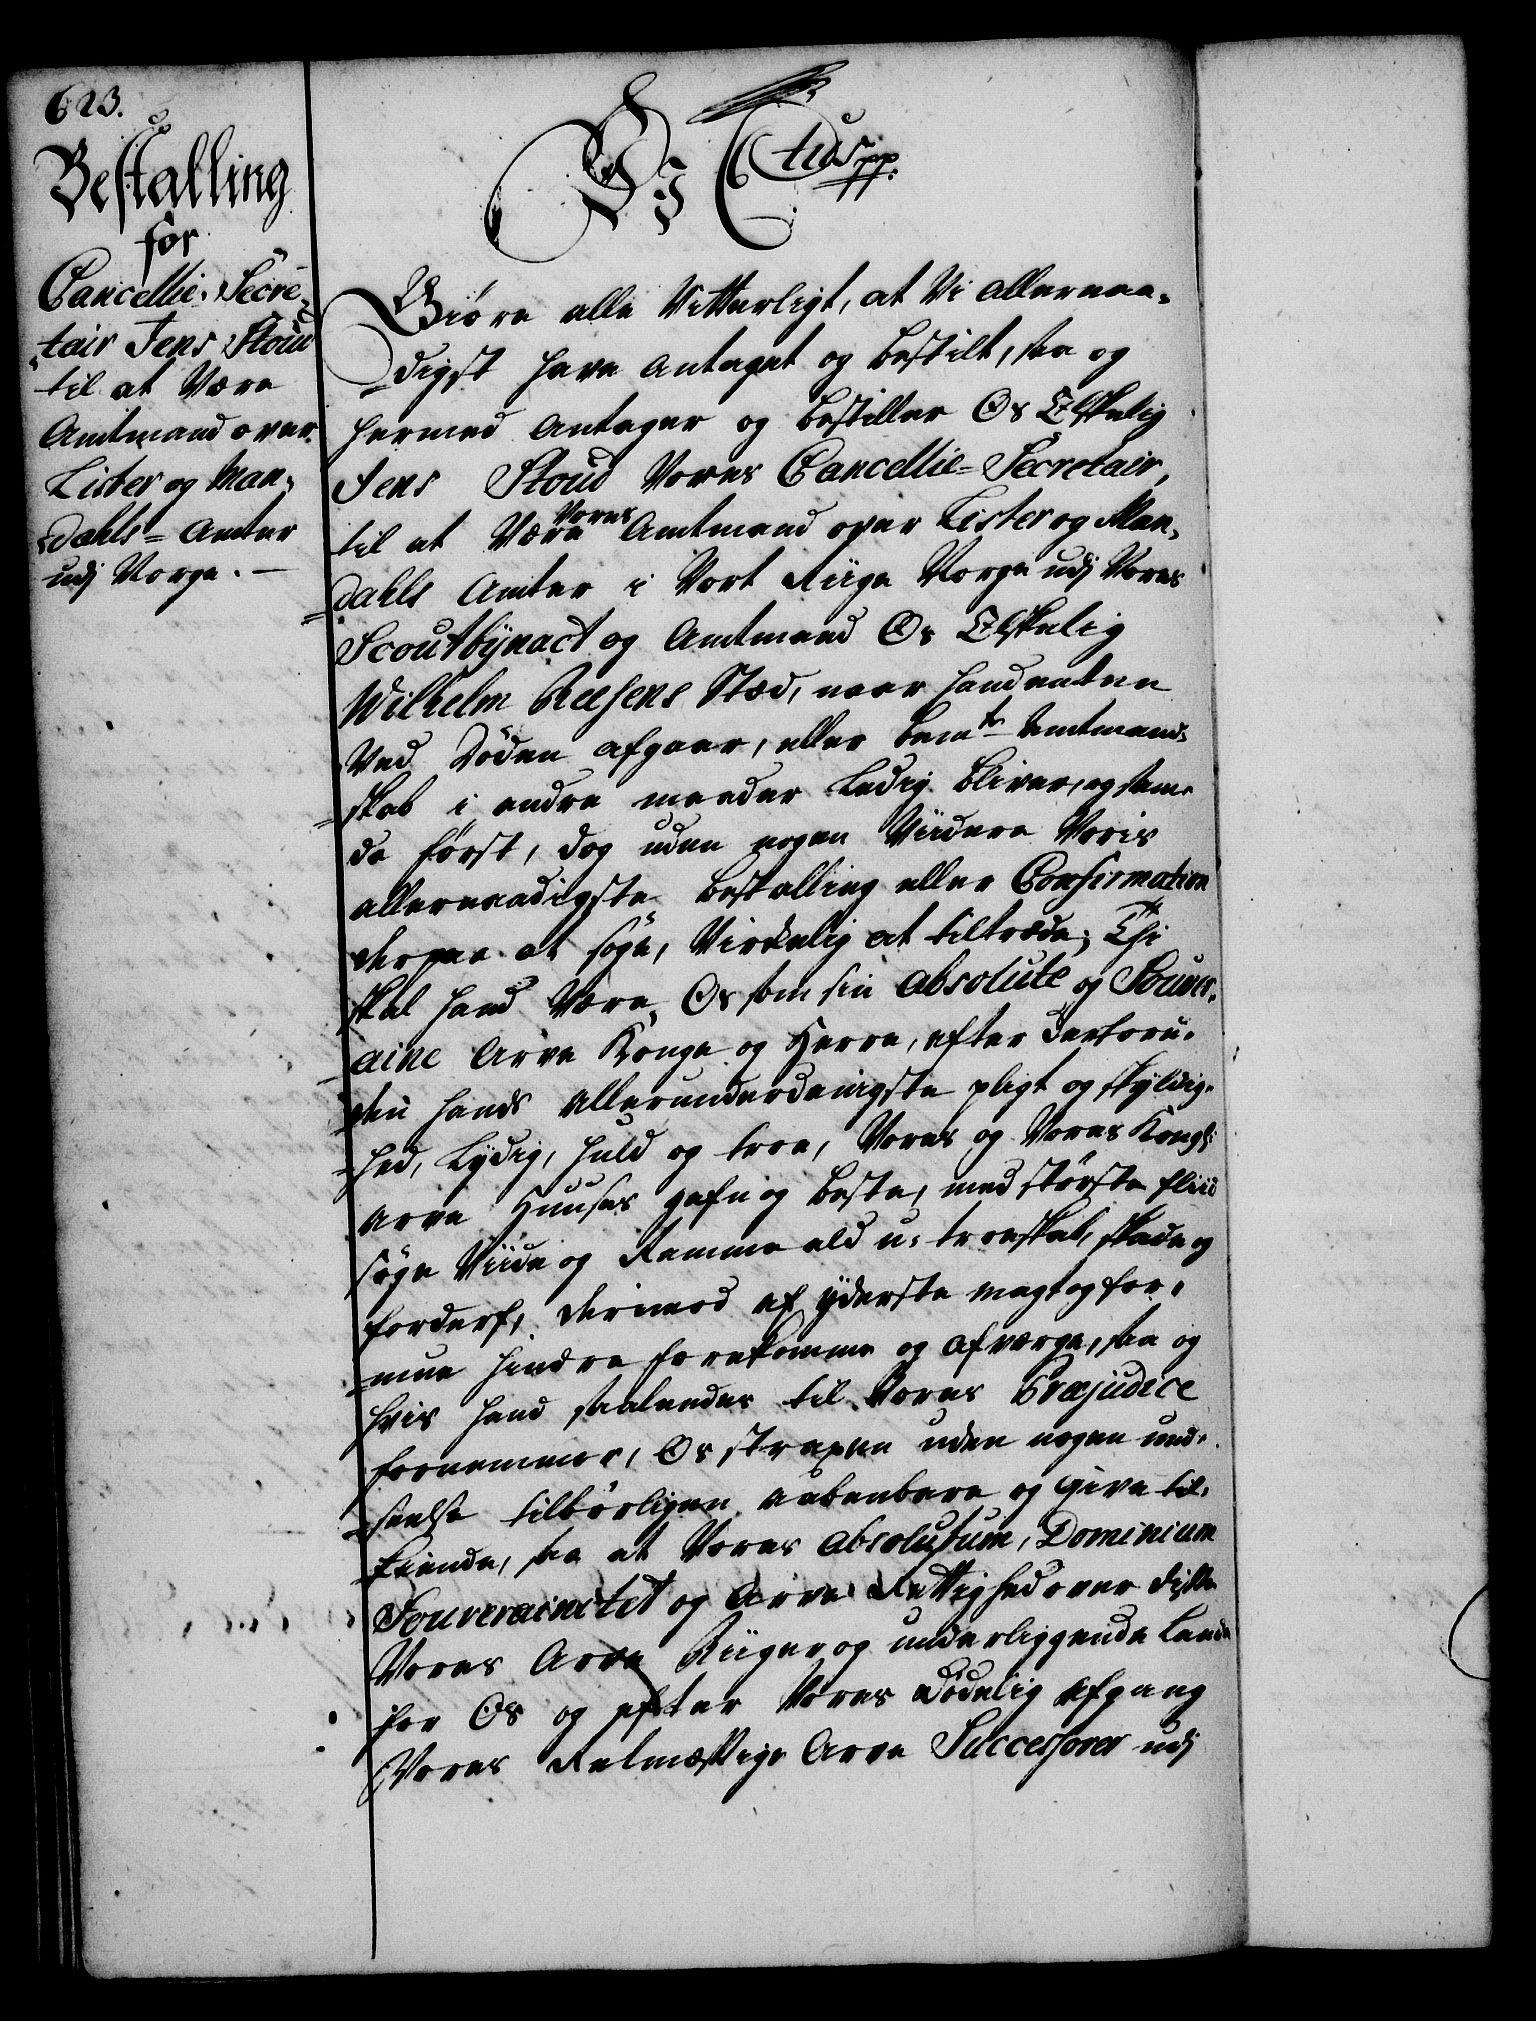 623.
Bestalling
for
Cancellie-Secre-
tair Jens Stoud
til at Være
Amtmand over
Lister og Man-
dahls-Amter
udj Norge.
Vi C tus pp.
Giøre alle Vitterligt, at Vi allernaa-
digst have antaget og bestilt, saa og
hermed antager og bestiller Os Elskelig
Jens Stoud Vores Cancellie-Secretair,
til at Være Vores Amtmand over Lister og Man-
dahls Amter i Vort Riige Norge udj Vores
Scoutbynact og Amtmand Os Elskelig
Wilhelm Reesens Stæd, naar hand enten
Ved Döden afgaar, eller bemte Amtmand-
skab i andre maader Ledig bliver, og sam-
da först, dog uden nogen Viidere Voris
allernaadigste bestalling eller Confirmation
derpaa at søge, Virkelig at tiltræde; Thi
skal hand Være Os som sin absolute og Souver-
aine Arve Konge og Herre, efter
hands allerunderdanigste pligt og skyldig-
hed, Lydig, huld og troe, Vores og Vores Kongl:
Arve Huuses gafn og beste, med störste fliid
søge Viide og Ramme ald u-troeskab, skade og
forderf, derimod af yderste magt og for-
mue hindre forekomme og afværge, saa og
hvis hand saaledes til Vores Præjudice
fornemmer, Os strax uden nogen und-
seelse tilbörligen aabenbare og give til-
kiende, saa at Vores absolutum, Dominium
Souverainitet og Arve Rettighed over disse
Vores Arve Riiger og underliggende Lande
for Os og efter Vores Dödelig afgang
Vores Retmæssige Arve Successorer udj